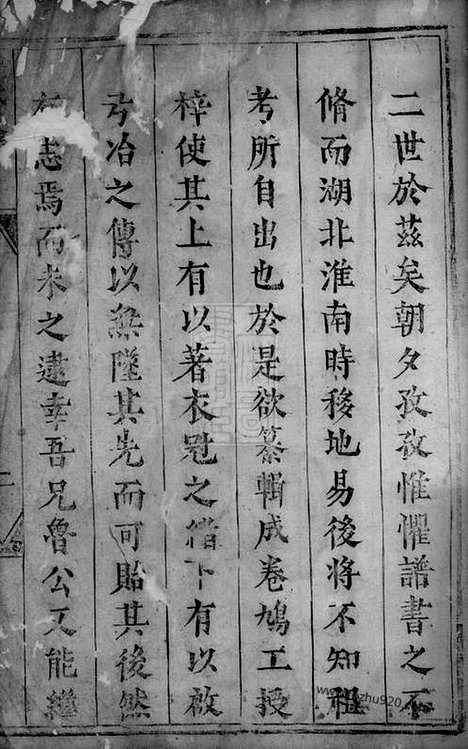 二世於茲矣朝夕孜孜惟懼譜書之不
脩而湖北淮南時移地易後将不知祖
考所自出也於是欲纂輯成卷鳩工授
梓使其上有以著衣冠之下有以啟
弓冶之傳以無墜其先而可貽其後然
志焉而未之逮幸吾兄魯公又能繼